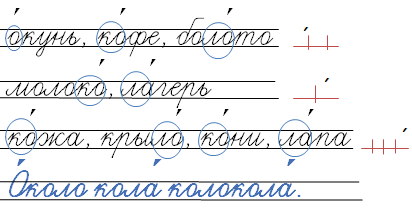 о́кунь, ко́фе, боло́то
молоко́, ла́герь
ко́жа, крыло́, ко́ни, ла́па
О́коло кола́ колокола́.